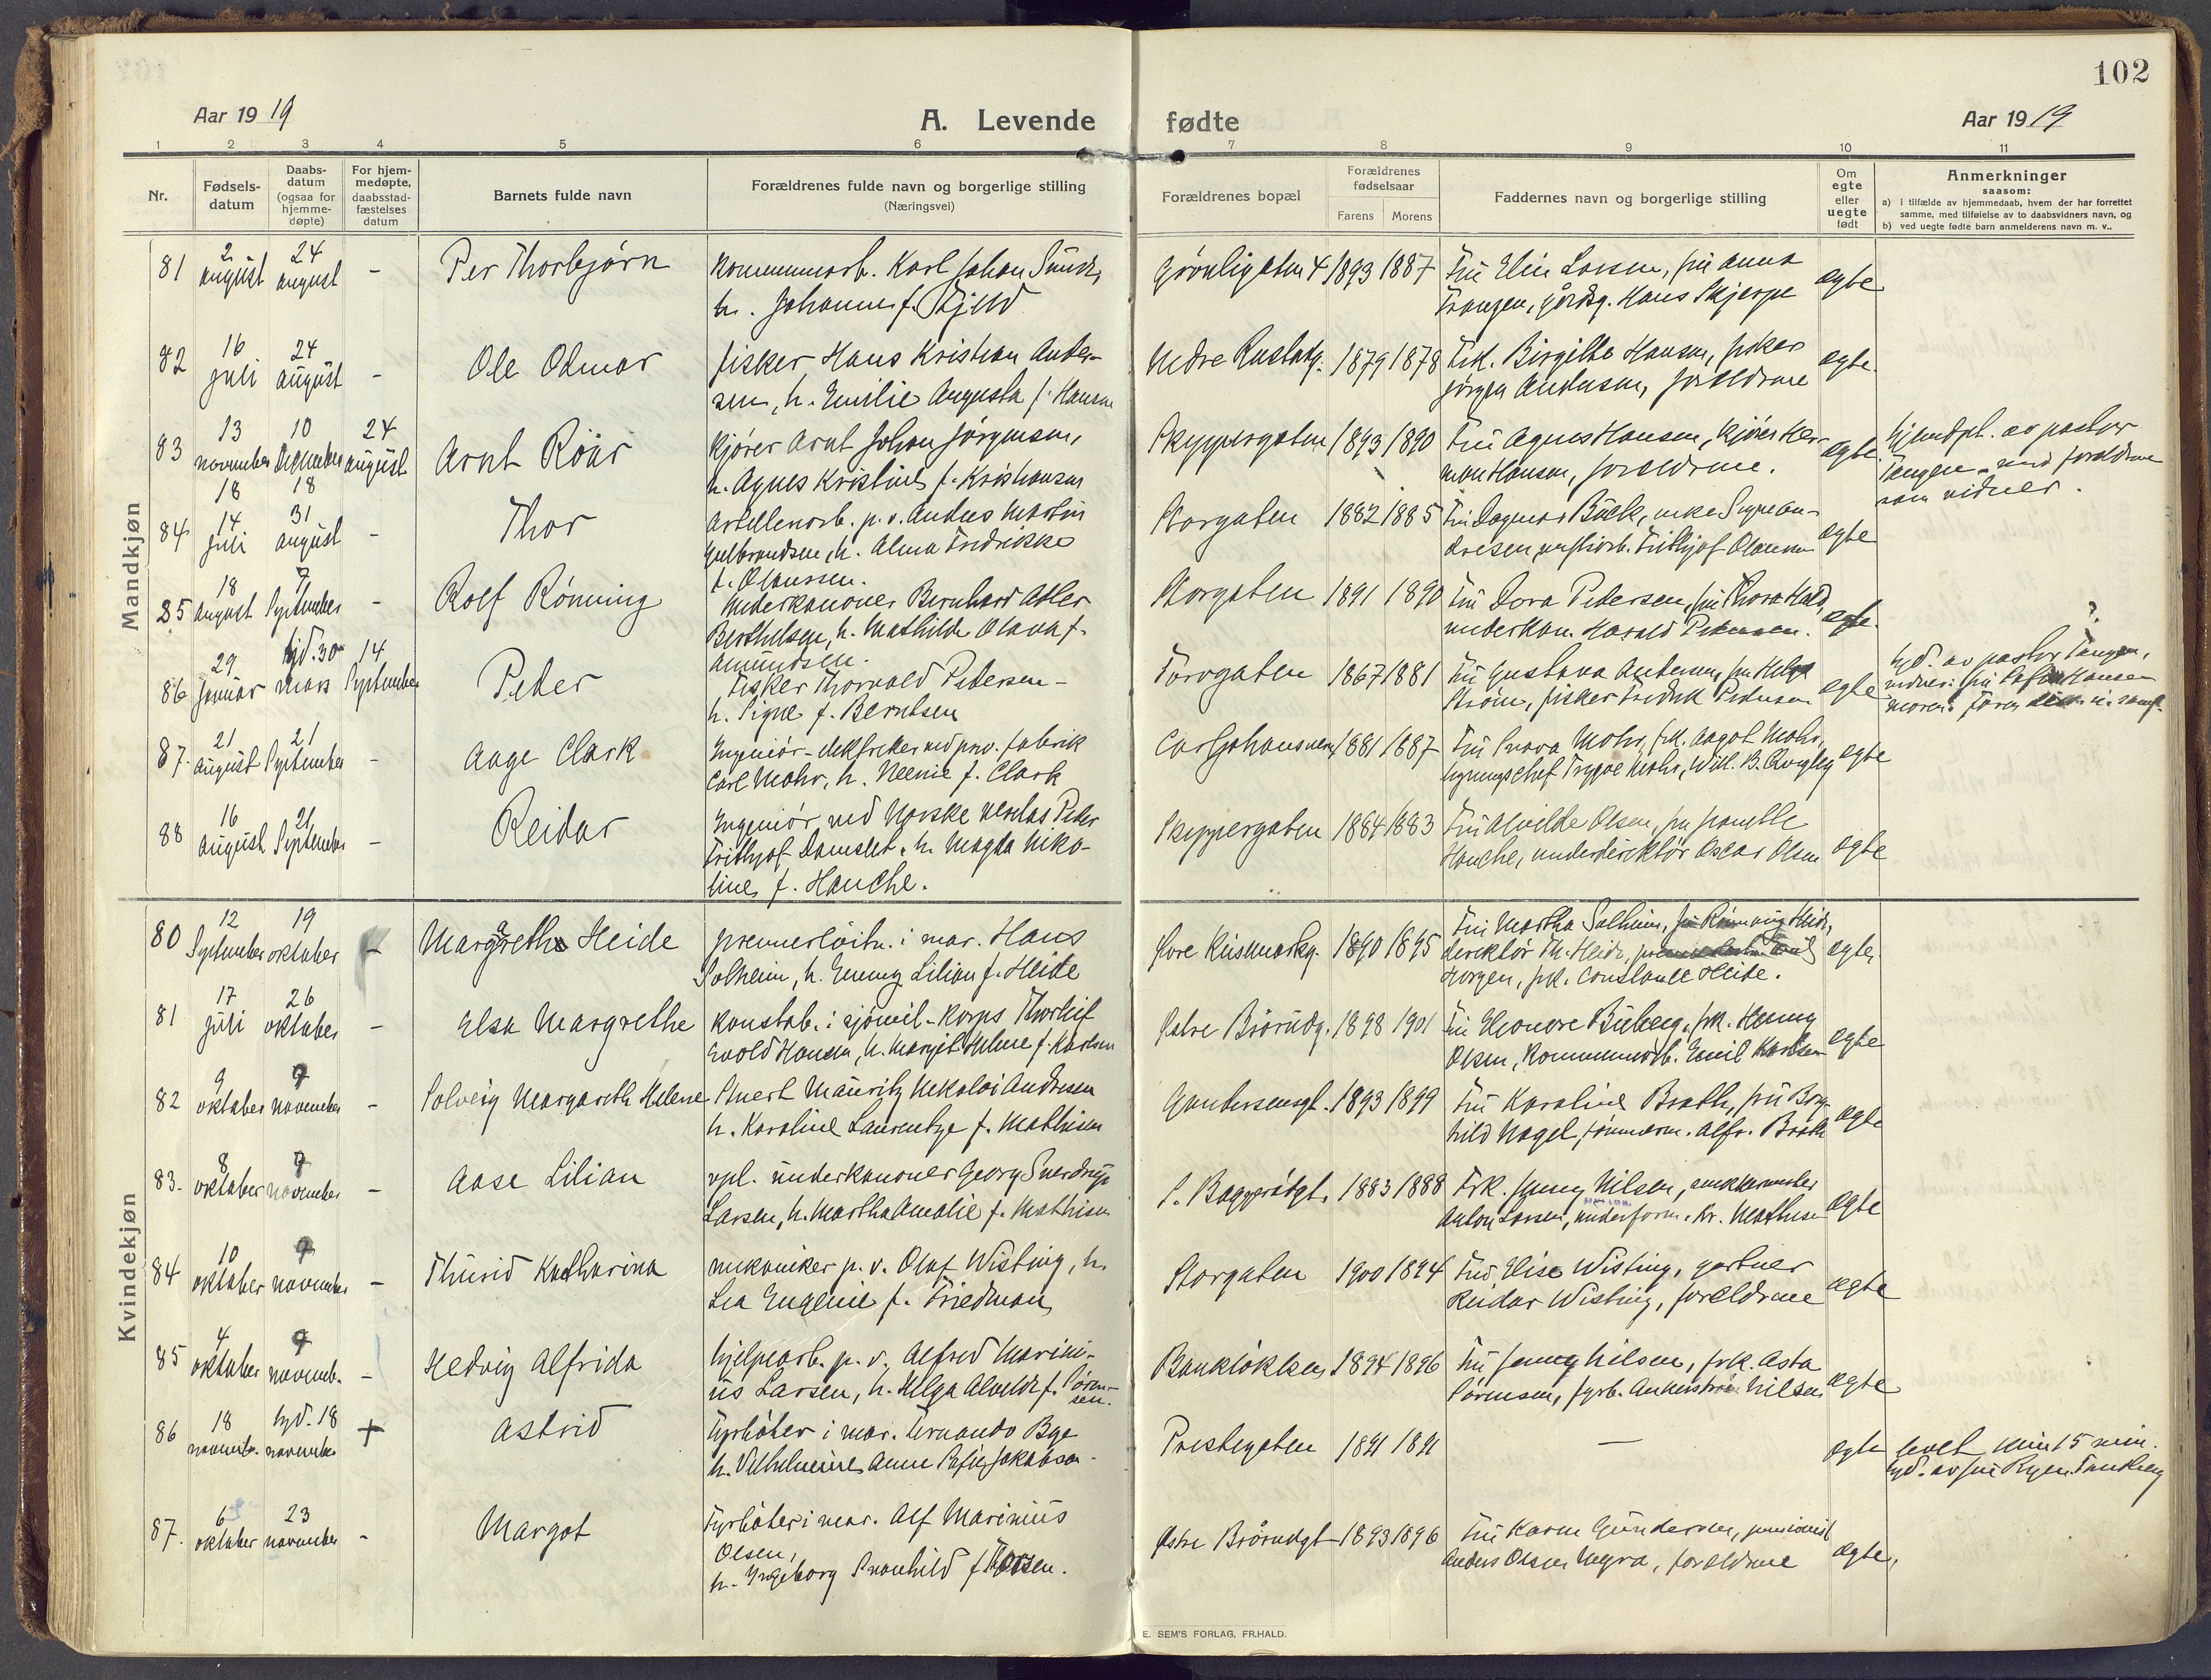 102
Aar 1919
A. Levende fødte
Aar 1919
1 2 3 4 5 6 7 8 9 10 11
Nr.
Fødsels-
datum
Daabs-
datum
(ogsaa for
hjemme-
døpte)
For hjem-
medøpte,
daabsstad-
fæstelses
datum
Barnets fulde navn
Forældrenes fulde navn og borgerlige stilling
(Næringsvei)
Forældrenes bopæl
Forældrenes
fødselsaar
Farens
Morens
Faddernes navn og borgerlige stilling
Om
egte
eller
uegte
født
Anmerkninger
saasom:
a) i tilfælde av hjemmedaab, hvem der har forrettet
samme, med tilføielse av to daabsvidners navn, og
b) ved uegte fødte barn anmelderens navn m. v..
Mandkjøn
81 2 august 24 august - Per Thorbjørn
kommunearb. Karl Johan Sund,
h. Johanne f. Fjeld
Grønligaten 4 1893 1887
Fru Elin Larsen, fru Anna
Frangen, gårdbg. Hans Skjerpe
egte
82 16 juli 24 august - Ole Odmar
fisker Hans Kristian Ander-
sen, h. Emilie Augusta f. Hansen
Nedre Rustadg. 1879 1878
Frk. Birgitte Hansen, fisker
Jørgen Andersen, forældrene
egte
83 13 november 18 10 December 18 24 august Arnt Roar
kjører Arnt Johan Jørgensen,
h. Agnes Kristine f. Kristiansen
Skyppergaten 1893 1890
Fru Agnes Hansen, kjører Her-
man Hansen, forældrene.
egte
Hjemdpt. av pastor
Tangen med forældrene
som vidner.
84 14 juli 31 august - Thor
Artillerarb. p. v. Anders Martin
Gulbrandsen, h. Alma Fredrikke
f. Olaussen.
Storgaten 1882 1885
Fru Dagmar Bück, enke Signe An-
dresen, Frithjof Olaussen
egte
85 18 august 7 September - Rolf Rönning
Underkanoner Bernhard Adler
Berthelsen, h. Mathilde Olava f.
Amundsen.
Storgaten 1891 1890
Fru Dora Pedersen, fru Thora Hald,
underkan. Harald Petersen.
egte.
86 29 Januar hjd. 30 mars 14 September Peter
Fisker Thorvald Petersen -
h. Signe f. Berntsen
Torvgaten 1867 1881
Fru Gustava Andersen, fru Helga
Strøm, fisker Fredrik Pedersen
egte
?
hjd. av pastor Tangen,
vidner: fru Hansen
moren.
87. 21 august 21 September - Aage Clark
Ingeniør-elektriker ved priv. fabrik
Carl Mohr, h. Neenie f. Clark
Carljohansvern 1881 1887
Fru Svava Mohr, frk. Aagot Mohr,
Trygve Mohr, Will. B.
egte
88 16 august 21 September - Reidar
Ingeniør ved Horske verslas Peder
Frithjof Damslet, h. Magda Niko-
line f. Hauche.
Skyppergaten 1884 1883
Fru Alvilde Olsen,
Hauche, underdirektör Oscar Olsen
egte
Kvindekjøn
80 12 September 19 oktober - Margrethe Heide
premierløitn. i mar. Hans
Solheim, h. Emmy Lilian f. Heide
Øvre Keisemarkg. 1890 1895
Fru Martha Solheim, fru Rönnaug Heide,
direktør Th. Heide,
Horgen, frk. Constance Heide.
egte.
81 17 juli 26 oktober - Elsa Margrethe
konstab. i sjømil-korps Thorleif
Evold Hansen, h. Margit Helene f. Karlsen
Østre Brårudg. 1898 1901
Fru Eleonore Büberg, frk. Henny
Olsen, kommunearb. Emil Karlsen
egte
82 9 oktober 9 november - Solveig Margareth Helene
Stuert Mauritz Nikolai Andresen
h. Karoline Laurentze f. Mathisen
Gundersensgt. 1893 1899
Fru Karoline Brath, fru Borg-
hild Nagel, tømmerm. Alfr. Brath
egte
83. 8 oktober 9 november - Aase Lilian
vpl. underkanoner Georg Sverdrup
Larsen, h. Martha Amalie f. Mathisen
S. Baggerödgt. 1883 1888
Frk. Jenny Nilsen, snekkermester
Anton Larsen, underform. Kr. Mathisen
egte
84 10 oktober 9 november - Thurid Katharina
mekaniker p. v. Olaf Wisting, h.
Lea Eugenie f. Friedman
Storgaten 1900 1894
Fru Elise Wisting, gartner
Reidar Wisting, forældrene
egte
85 4 oktober 9 novemb. - Hedvig Alfrida
hjelpearb. p. v. Alfred Marini-
us Larsen, h. Helga Alvilde f. Sören-
sen.
Bankløkken 1894 1896
Fru Jenny Nilsen, frk. Asta
Sørensen, fyrb. Ankerström Nilsen
egte
86 18 novemb. hjd. 18 novemb. + Astrid
Fyrbøter i mar. Fernando Bye
h. Vilhelmine Anne Sofie Jakobsen.
Prestegaten 1891 1891 -
egte
levet kun 15 min.
hjd. av fru Ryen Tandberg
87. 6 oktober 23 november - Margot
Fyrbøter i mar. Alf Marinius
Olsen,
h. Ingeborg Svanhild f. Thorsen.
Østre Brårudgt. 1893 1896
Fru Karen Gundersen, pensionist
Anders Olsen Myra, forældrene
egte,
E. SEM'S FORLAG, FR.HALD.